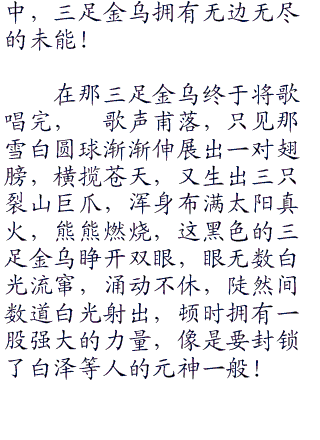 中，三足金乌拥有无边无尽
的未能！
在那三足金乌终于将歌
唱完， 歌声甫落，只见那
雪白圆球渐渐伸展出一对翅
膀，横揽苍天，又生出三只
裂山巨爪，浑身布满太阳真
火，熊熊燃烧，这黑色的三
足金乌睁开双眼，眼无数白
光流窜，涌动不休，陡然间
数道白光射出，顿时拥有一
股强大的力量，像是要封锁
了白泽等人的元神一般！